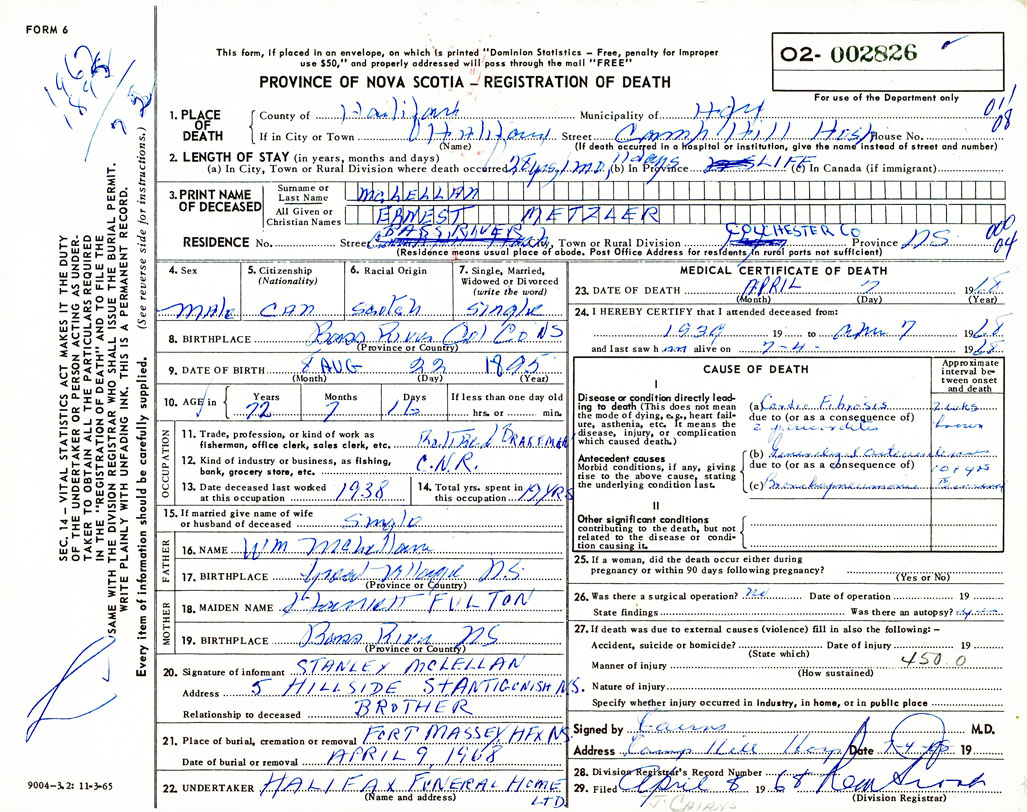 FORM 6
This form, if placed in an envelope, on which is printed "Dominion Statistics – Free, penalty for improper
use $50," and properly addressed will pass through the mail "FREE"
PROVINCE OF NOVA SCOTIA – REGISTRATION OF DEATH
02- 002826
For use of the Department only
1962
1895
011
08
1. PLACE OF DEATH
County of Halifax Municipality of Hfx
If in City or Town Halifax Street Camp Hill Hosp House No.
(Name) (If death occurred in a hospital or institution, give the name instead of street and number)
2. LENGTH OF STAY (in years, months and days)
(a) In City, Town or Rural Division where death occurred 28 yrs, 1 mo, 11 days (b) In Province LIFE (c) In Canada (if immigrant)
3. PRINT NAME OF DECEASED
Surname or Last Name McLELLAN
All Given or Christian Names ERNEST METZLER
RESIDENCE No. Street BASS RIVER City, Town or Rural Division COLCHESTER CO Province N.S.
(Residence means usual place of abode. Post Office Address for residents in rural parts not sufficient)
000
04
4. Sex male
5. Citizenship (Nationality) CAN
6. Racial Origin Scotch
7. Single, Married, Widowed or Divorced (write the word) Single
8. BIRTHPLACE Bass River Col Co NS
(Province or Country)
9. DATE OF BIRTH 8 AUG 22 1895
(Month) (Day) (Year)
10. AGE in Years 72 Months 7 Days If less than one day old hrs. or min.
OCCUPATION
11. Trade, profession, or kind of work as fisherman, office clerk, sales clerk, etc. Retired BRAKEMAN
12. Kind of industry or business, as fishing, bank, grocery store, etc. C.N.R.
13. Date deceased last worked at this occupation 1938
14. Total yrs. spent in this occupation 19 YRS
15. If married give name of wife or husband of deceased Single
FATHER
16. NAME Wm McLellan
17. BIRTHPLACE Great Village N.S.
(Province or Country)
MOTHER
18. MAIDEN NAME Harriett FULTON
19. BIRTHPLACE Bass River NS
(Province or Country)
20. Signature of informant STANLEY McLELLAN
Address 5 HILLSIDE ST ANTIGONISH N.S.
Relationship to deceased BROTHER
21. Place of burial, cremation or removal FORT MASSEY HFX NS.
Date of burial or removal APRIL 9, 1968
22. UNDERTAKER HALIFAX FUNERAL HOME LTD.
(Name and address)
MEDICAL CERTIFICATE OF DEATH
23. DATE OF DEATH APRIL 7 1968
(Month) (Day) (Year)
24. I HEREBY CERTIFY that I attended deceased from:
1939 19 to Apr 7 1968
and last saw him alive on 7-4- 1968
CAUSE OF DEATH
Approximate interval between onset and death
I
Disease or condition directly leading to death (This does not mean the mode of dying, e.g., heart failure, asthenia, etc. It means the disease, injury, or complication which caused death.)
(a) Cardic Fibrosis
due to (or as a consequence of)
Antecedent causes
Morbid conditions, if any, giving rise to the above cause, stating the underlying condition last.
(b) Generalized
due to (or as a consequence of) 10 + yrs
(c) Bronchopneumonia
II
Other significant conditions contributing to the death, but not related to the disease or condition causing it.
25. If a woman, did the death occur either during pregnancy or within 90 days following pregnancy?
(Yes or No)
26. Was there a surgical operation? No Date of operation 19
State findings Was there an autopsy?
27. If death was due to external causes (violence) fill in also the following: –
Accident, suicide or homicide? Date of injury 19
(State which)
Manner of injury 450.0
(How sustained)
Nature of injury
Specify whether injury occurred in industry, in home, or in public place
Signed by Cairns M.D.
Address Camp Hill Hosp Date 19
28. Division Registrar's Record Number
29. Filed April 8 1968
(Division Registrar)
J. CAIRNS
SEC. 14 – VITAL STATISTICS ACT MAKES IT THE DUTY
OF THE UNDERTAKER OR PERSON ACTING AS UNDER-
TAKER TO OBTAIN ALL THE PARTICULARS REQUIRED
IN THE "REGISTRATION OF DEATH" AND TO FILE THE
SAME WITH THE DIVISION REGISTRAR WHO SHALL ISSUE THE BURIAL PERMIT.
WRITE PLAINLY WITH UNFADING INK. THIS IS A PERMANENT RECORD.
Every item of information should be carefully supplied. (See reverse side for instructions.)
9004-3.2: 11-3-65